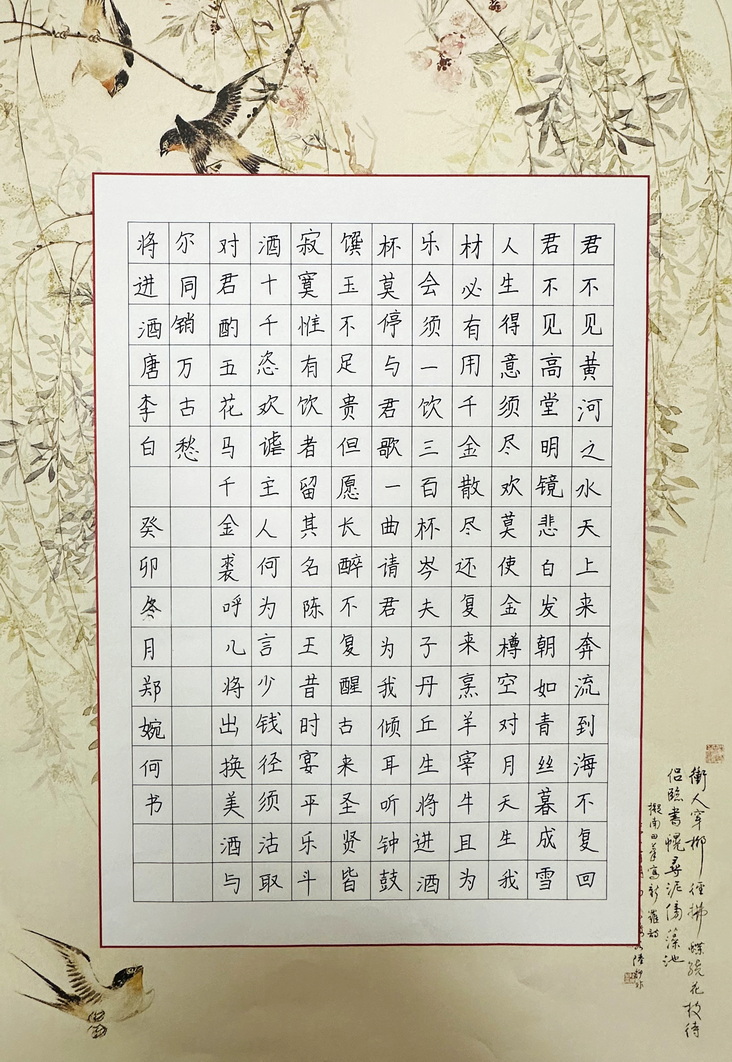 君不见黄河之水天上来奔流到海不复回
君不见高堂明镜悲白发朝如青丝暮成雪
人生得意须尽欢莫使金樽空对月天生我
材必有用千金散尽还复来烹羊宰牛且为
乐会须一饮三百杯岑夫子丹丘生将进酒
杯莫停与君歌一曲请君为我倾耳听钟鼓
馔玉不足贵但愿长醉不复醒古来圣贤皆
寂寞惟有饮者留其名陈王昔时宴平乐斗
酒十千恣欢谑主人何为言少钱径须沽取
对君酌五花马千金裘呼儿将出换美酒与
尔同销万古愁
将进酒唐李白 癸卯冬月郑婉何书
衝人穿柳徑拂蝶繞花枝待
侶臨書幌尋泥傍藻池